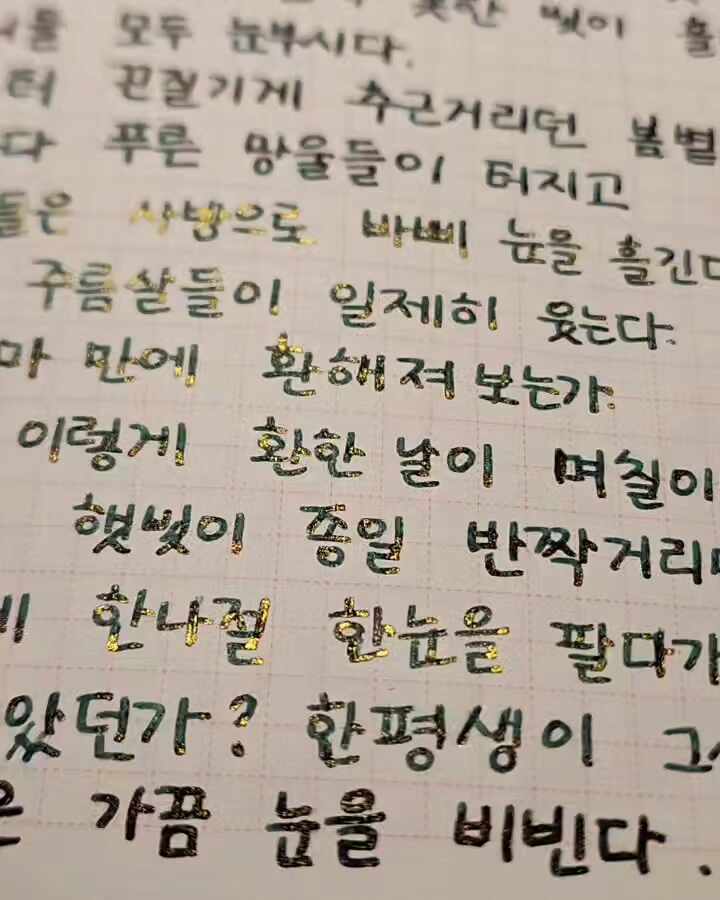 모두 눈부시다.
끈질기게 추근거리던 봄볕
푸른 망울들이 터지고
들은 사방으로 바삐 눈을 흘긴다
주름살들이 일제히 웃는다.
만에 환해져 보는가.
이렇게 환한 날이 며칠이
햇빛이 종일 반짝거리
한나절 한눈을 팔다가
았던가? 한평생이 그
가끔 눈을 비빈다.